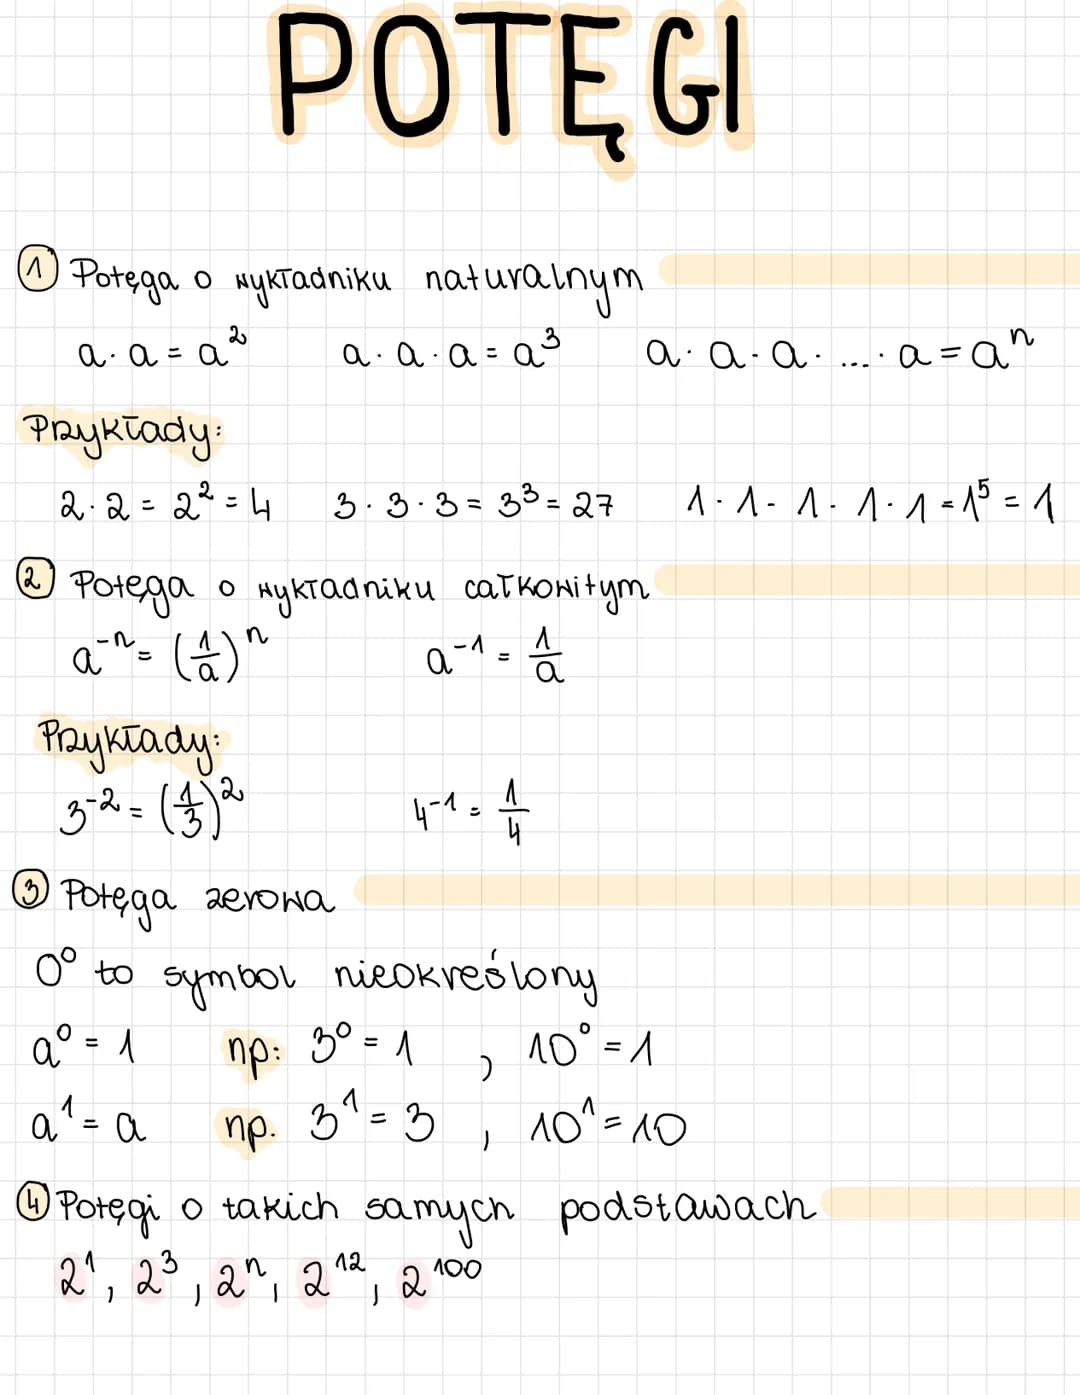 POTĘGI
1 Potęga o wykładniku naturalnym
a · a = a² a · a · a = a³ a · a · a · ... · a = aⁿ
Przykłady:
2 · 2 = 2² = 4 3 · 3 · 3 = 3³ = 27 1 · 1 · 1 · 1 · 1 = 1⁵ = 1
2 Potęga o wykładniku całkowitym
a⁻ⁿ = (1/a)ⁿ a⁻¹ = 1/a
Przykłady:
3⁻² = (1/3)² 4⁻¹ = 1/4
3 Potęga zerowa
0⁰ to symbol nieokreślony
a⁰ = 1 np: 3⁰ = 1 , 10⁰ = 1
a¹ = a np. 3¹ = 3 , 10¹ = 10
4 Potęgi o takich samych podstawach
2¹, 2³, 2ⁿ, 2¹², 2¹⁰⁰